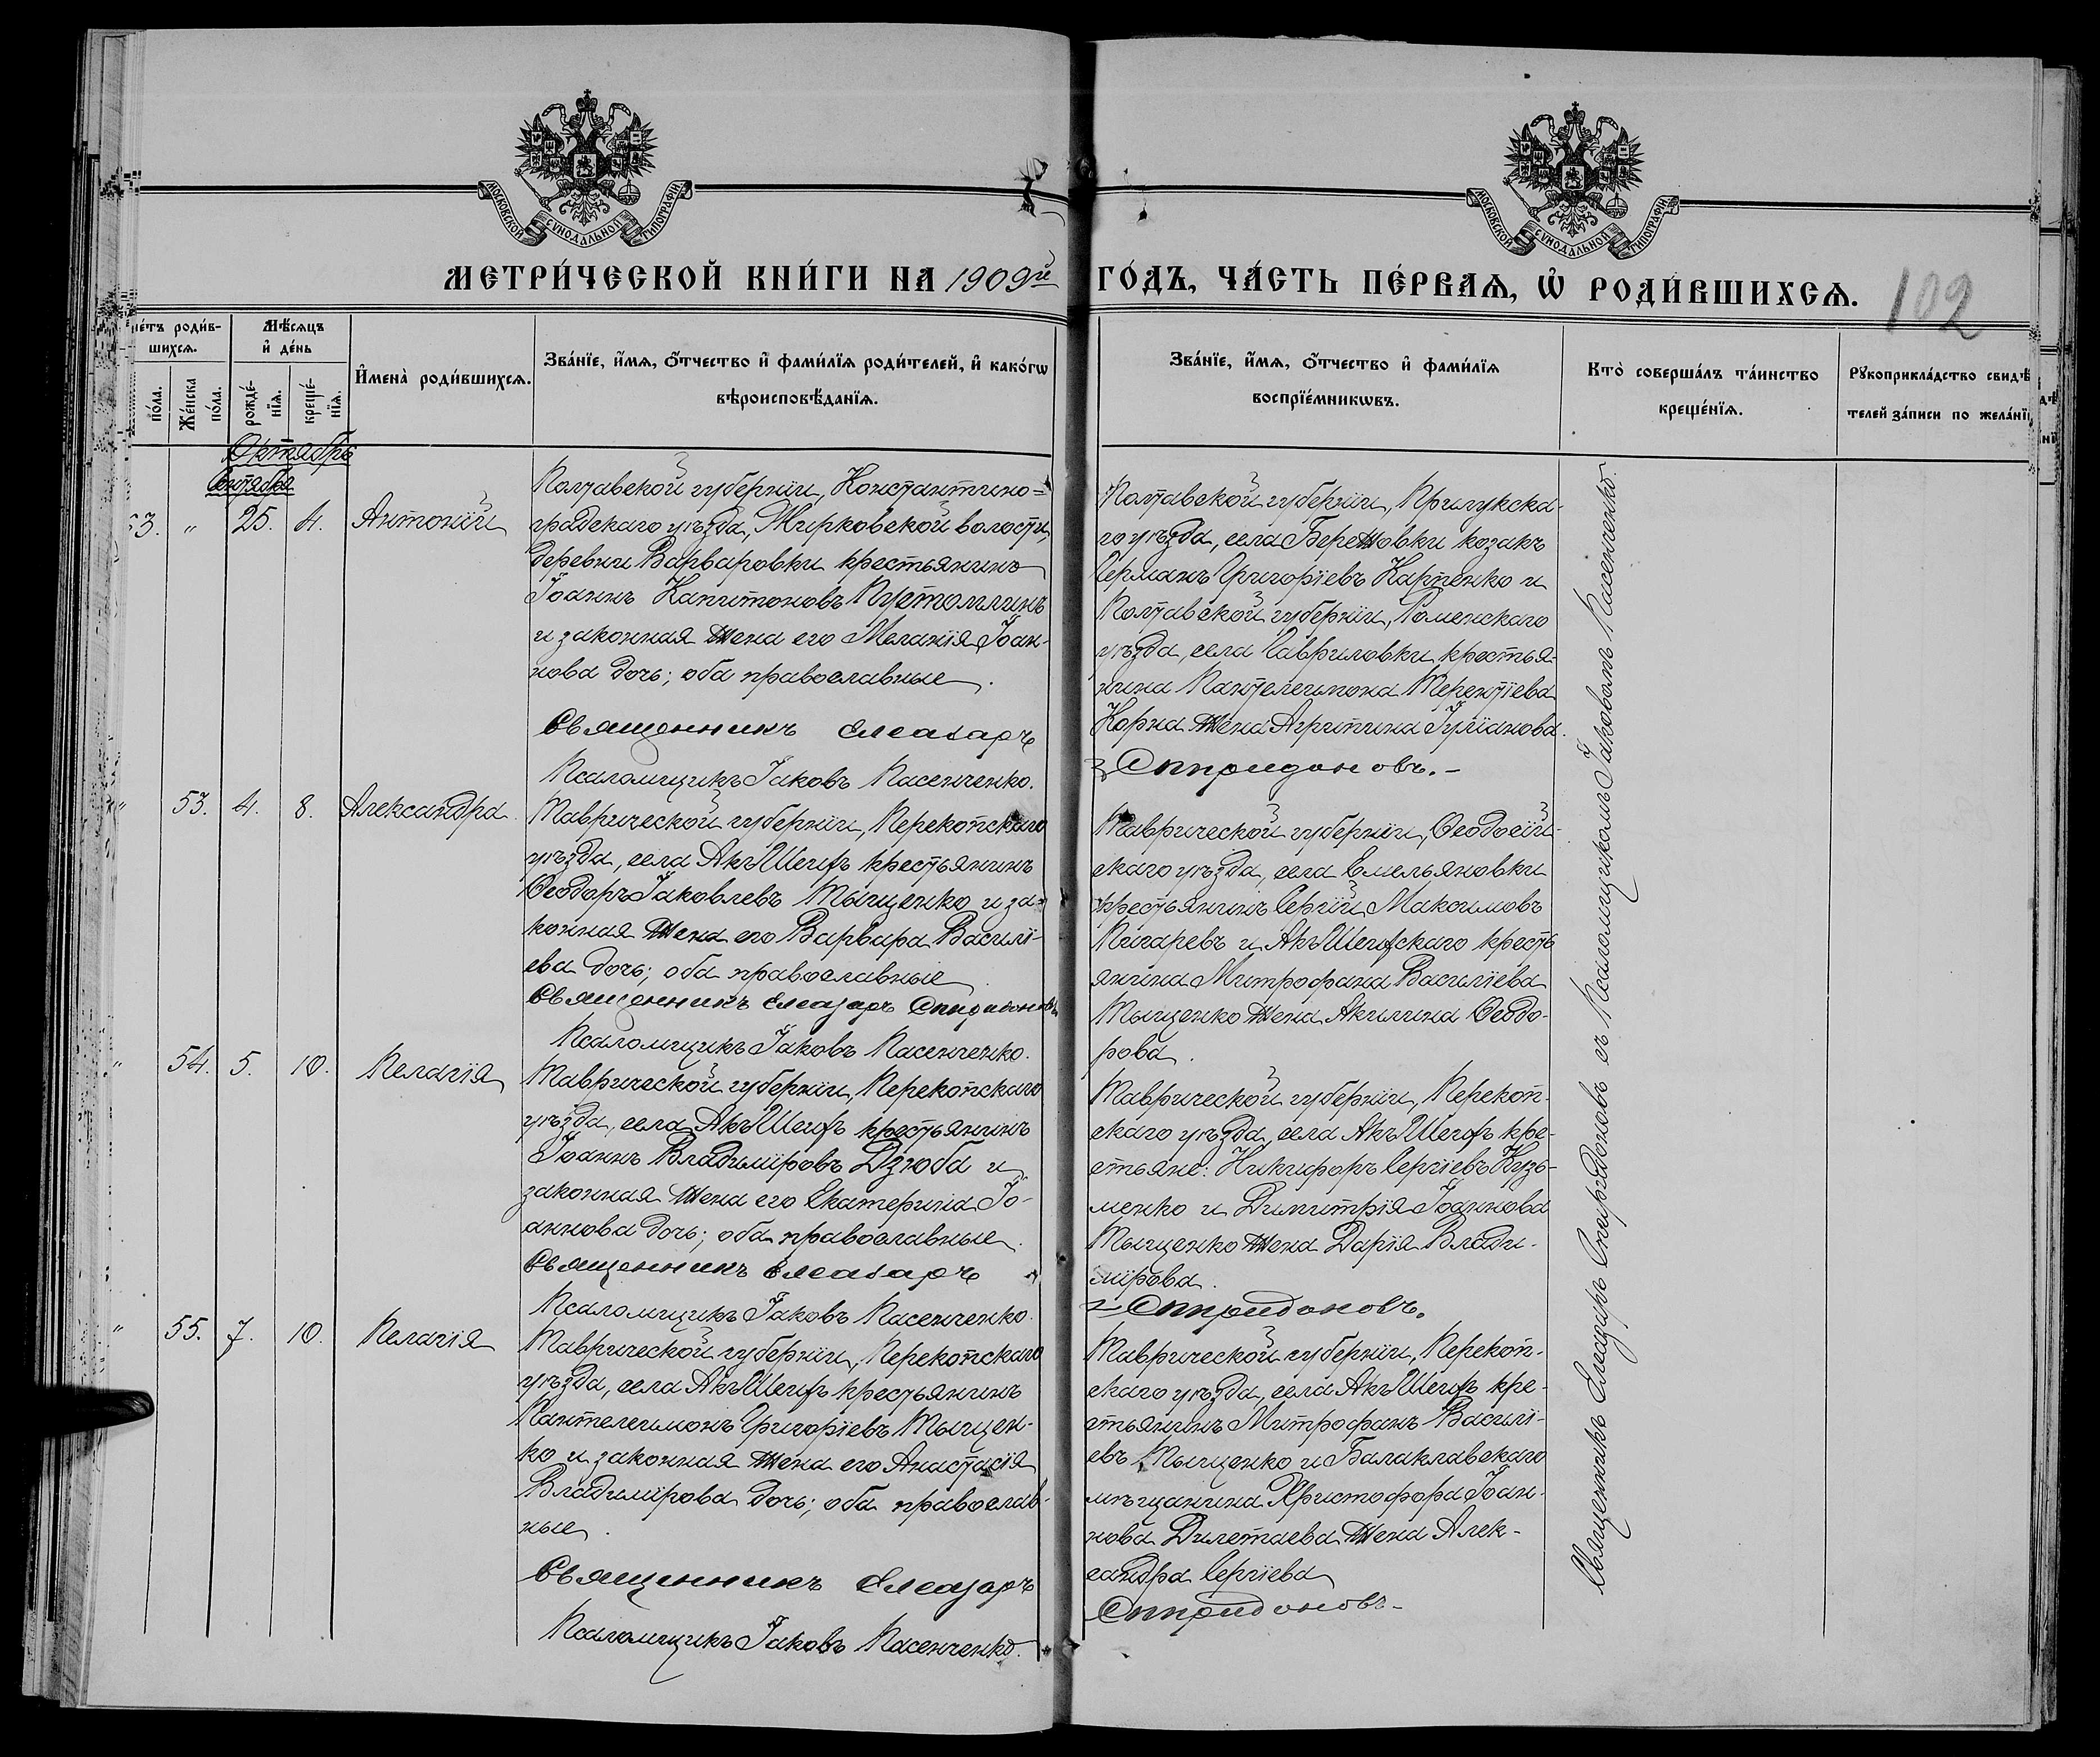 МОСКОВСКОЙ СУНОДАЛЬНОЙ ТИПОГРАФІИ
МОСКОВСКОЙ СУНОДАЛЬНОЙ ТИПОГРАФІИ
МЕТРИ́ЧЕСКОЙ КНИ́ГИ НА 1909й ГО́ДЪ, ЧА́СТЬ ПЕ́РВАѦ, Ѡ҆ РОДИ́ВШИХСѦ.
102
че́тъ роди́в-
шихсѧ.
по́ла.
Же́нска
по́ла.
Мѣ́сѧцъ
и҆ де́нь
рожде́-
нїѧ.
креще́-
нїѧ.
И҆мена̀ роди́вшихсѧ.
Зва́нїе, и҆́мѧ, ѻ҆́тчество и҆ фами́лїѧ роди́телей, и҆ како́гѡ
вѣроисповѣ́данїѧ.
Зва́нїе, и҆́мѧ, ѻ҆́тчество и҆ фами́лїѧ
воспрїе́мникѡвъ.
Кто̀ соверша́лъ та́инство
креще́нїѧ.
Рꙋкоприкла́дство свидѣ́
телей за́писи по жела́нї
Октябрь
Сентября
53. " 25. 4. Антоній
Полтавской губерніи, Константино=
градскаго уѣзда, Мирковской волости,
деревни Варваровки крестьянинъ
Іоаннъ Капитоновъ Пустомлинъ
и законная жена его Меланія Іоан-
нова дочь; оба православные.
Священникъ Елеазаръ
Псаломщикъ Іаковъ Пасенченко.
Полтавской губерніи, Прилукска-
го уѣзда, села Бережовки козакъ
Германъ Григоріевъ Карпенко и
Полтавской губерніи, Роменскаго
уѣзда, села Гавриловки крестья-
нина Пантелеимона Терентіева
Коржа жена Агрипина Іуліанова.
Спиридоновъ.
" 53. 4. 8. Александра.
Таврической губерніи, Перекопскаго
уѣзда, села Акъ Шеихъ крестьянинъ
Ѳеодоръ Іаковлевъ Тыщенко и за-
конная жена его Варвара Василі-
ева дочь; оба православные.
Священникъ Елеазаръ Спиридоновъ
Псаломщикъ Іаковъ Пасенченко.
Таврической губерніи, Ѳеодосій-
скаго уѣзда, села Емельяновки
крестьянинъ Сергій Максимовъ
Писаревъ и Акъ Шеихскаго кресть
янина Митрофана Василіева
Тыщенко жена Акилина Ѳеодо-
рова.
" 54. 5. 10. Пелагія
Таврической губерніи, Перекопскаго
уѣзда, села Акъ Шеихъ крестьянинъ
Іоаннъ Владиміровъ Дзюба и
законная жена его Екатерина Іо-
аннова дочь; оба православные.
Священникъ Елеазаръ
Псаломщикъ Іаковъ Пасенченко.
Таврической губерніи, Перекоп-
скаго уѣзда, села Акъ Шеихъ кре-
стьяне: Никифоръ Сергіевъ Кузь-
менко и Димитрія Іоаннова
Тыщенко жена Дарія Влади-
мірова.
Спиридоновъ.
" 55. 7. 10. Пелагія
Таврической губерніи, Перекопскаго
уѣзда, села Акъ Шеихъ крестьянинъ
Пантелеимонъ Григоріевъ Тыщен-
ко и законная жена его Анастасія
Владимірова дочь; оба православ-
ные.
Священникъ Елеазаръ
Псаломщикъ Іаковъ Пасенченко.
Таврической губерніи, Перекоп-
скаго уѣзда, села Акъ Шеихъ кре-
стьянинъ Митрофанъ Василі-
евъ Тыщенко и Балаклавскаго
мѣщанина Христофора Іоан-
нова Дилетаева жена Алек-
сандра Сергіева
Спиридоновъ
Священникъ Елеазаръ Спиридоновъ съ Псаломщикомъ Іаковомъ Пасенченко.